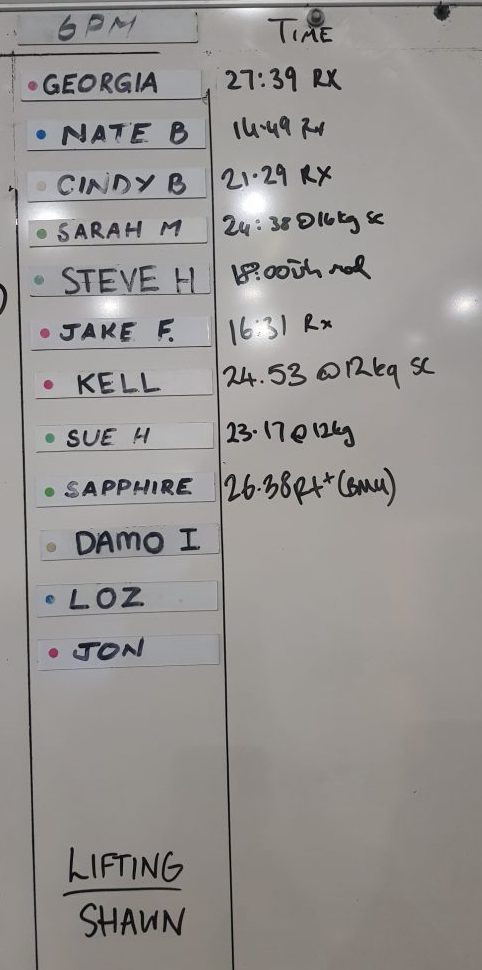 6PM TIME
GEORGIA 27:39 RX
NATE B 14.49 Rx
CINDY B 21.29 RX
SARAH M 24:38 @16kg SC
STEVE H 18:00
JAKE F. 16:31 Rx
KELL 24.53 @12kg SC
SUE H 23.17 @12kg
SAPPHIRE 26.38 RX+ (BMU)
DAMO I
LOZ
JON
LIFTING
SHAWN